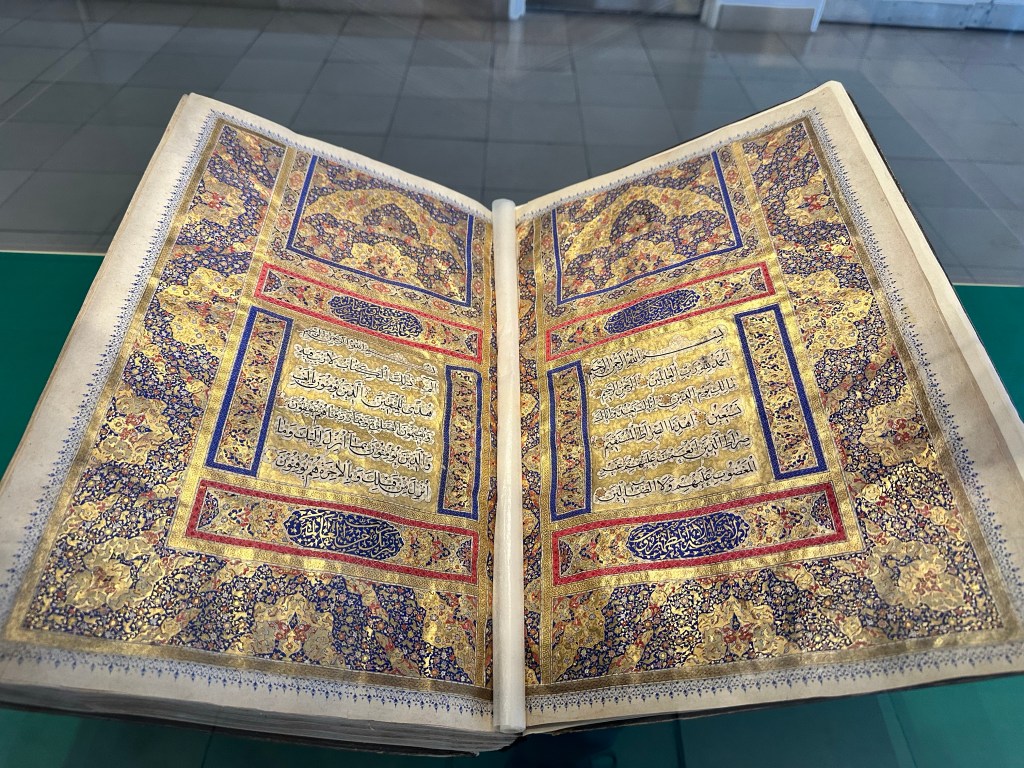 بسم الله الرحمن الرحيم
الحمد لله رب العالمين الرحمن الرحيم
مالك يوم الدين اياك نعبد واياك
نستعين اهدنا الصراط المستقيم
صراط الذين انعمت عليهم غير
المغضوب عليهم ولا الضالين
لا يمسه الا المطهرون
بسم الله الرحمن الرحيم
الم ذلك الكتاب لا ريب فيه
هدى للمتقين الذين يؤمنون بالغيب
ويقيمون الصلوة ومما رزقناهم ينفقون
والذين يؤمنون بما انزل اليك وما
انزل من قبلك وبالاخرة هم يوقنون
تنزيل من رب العالمين